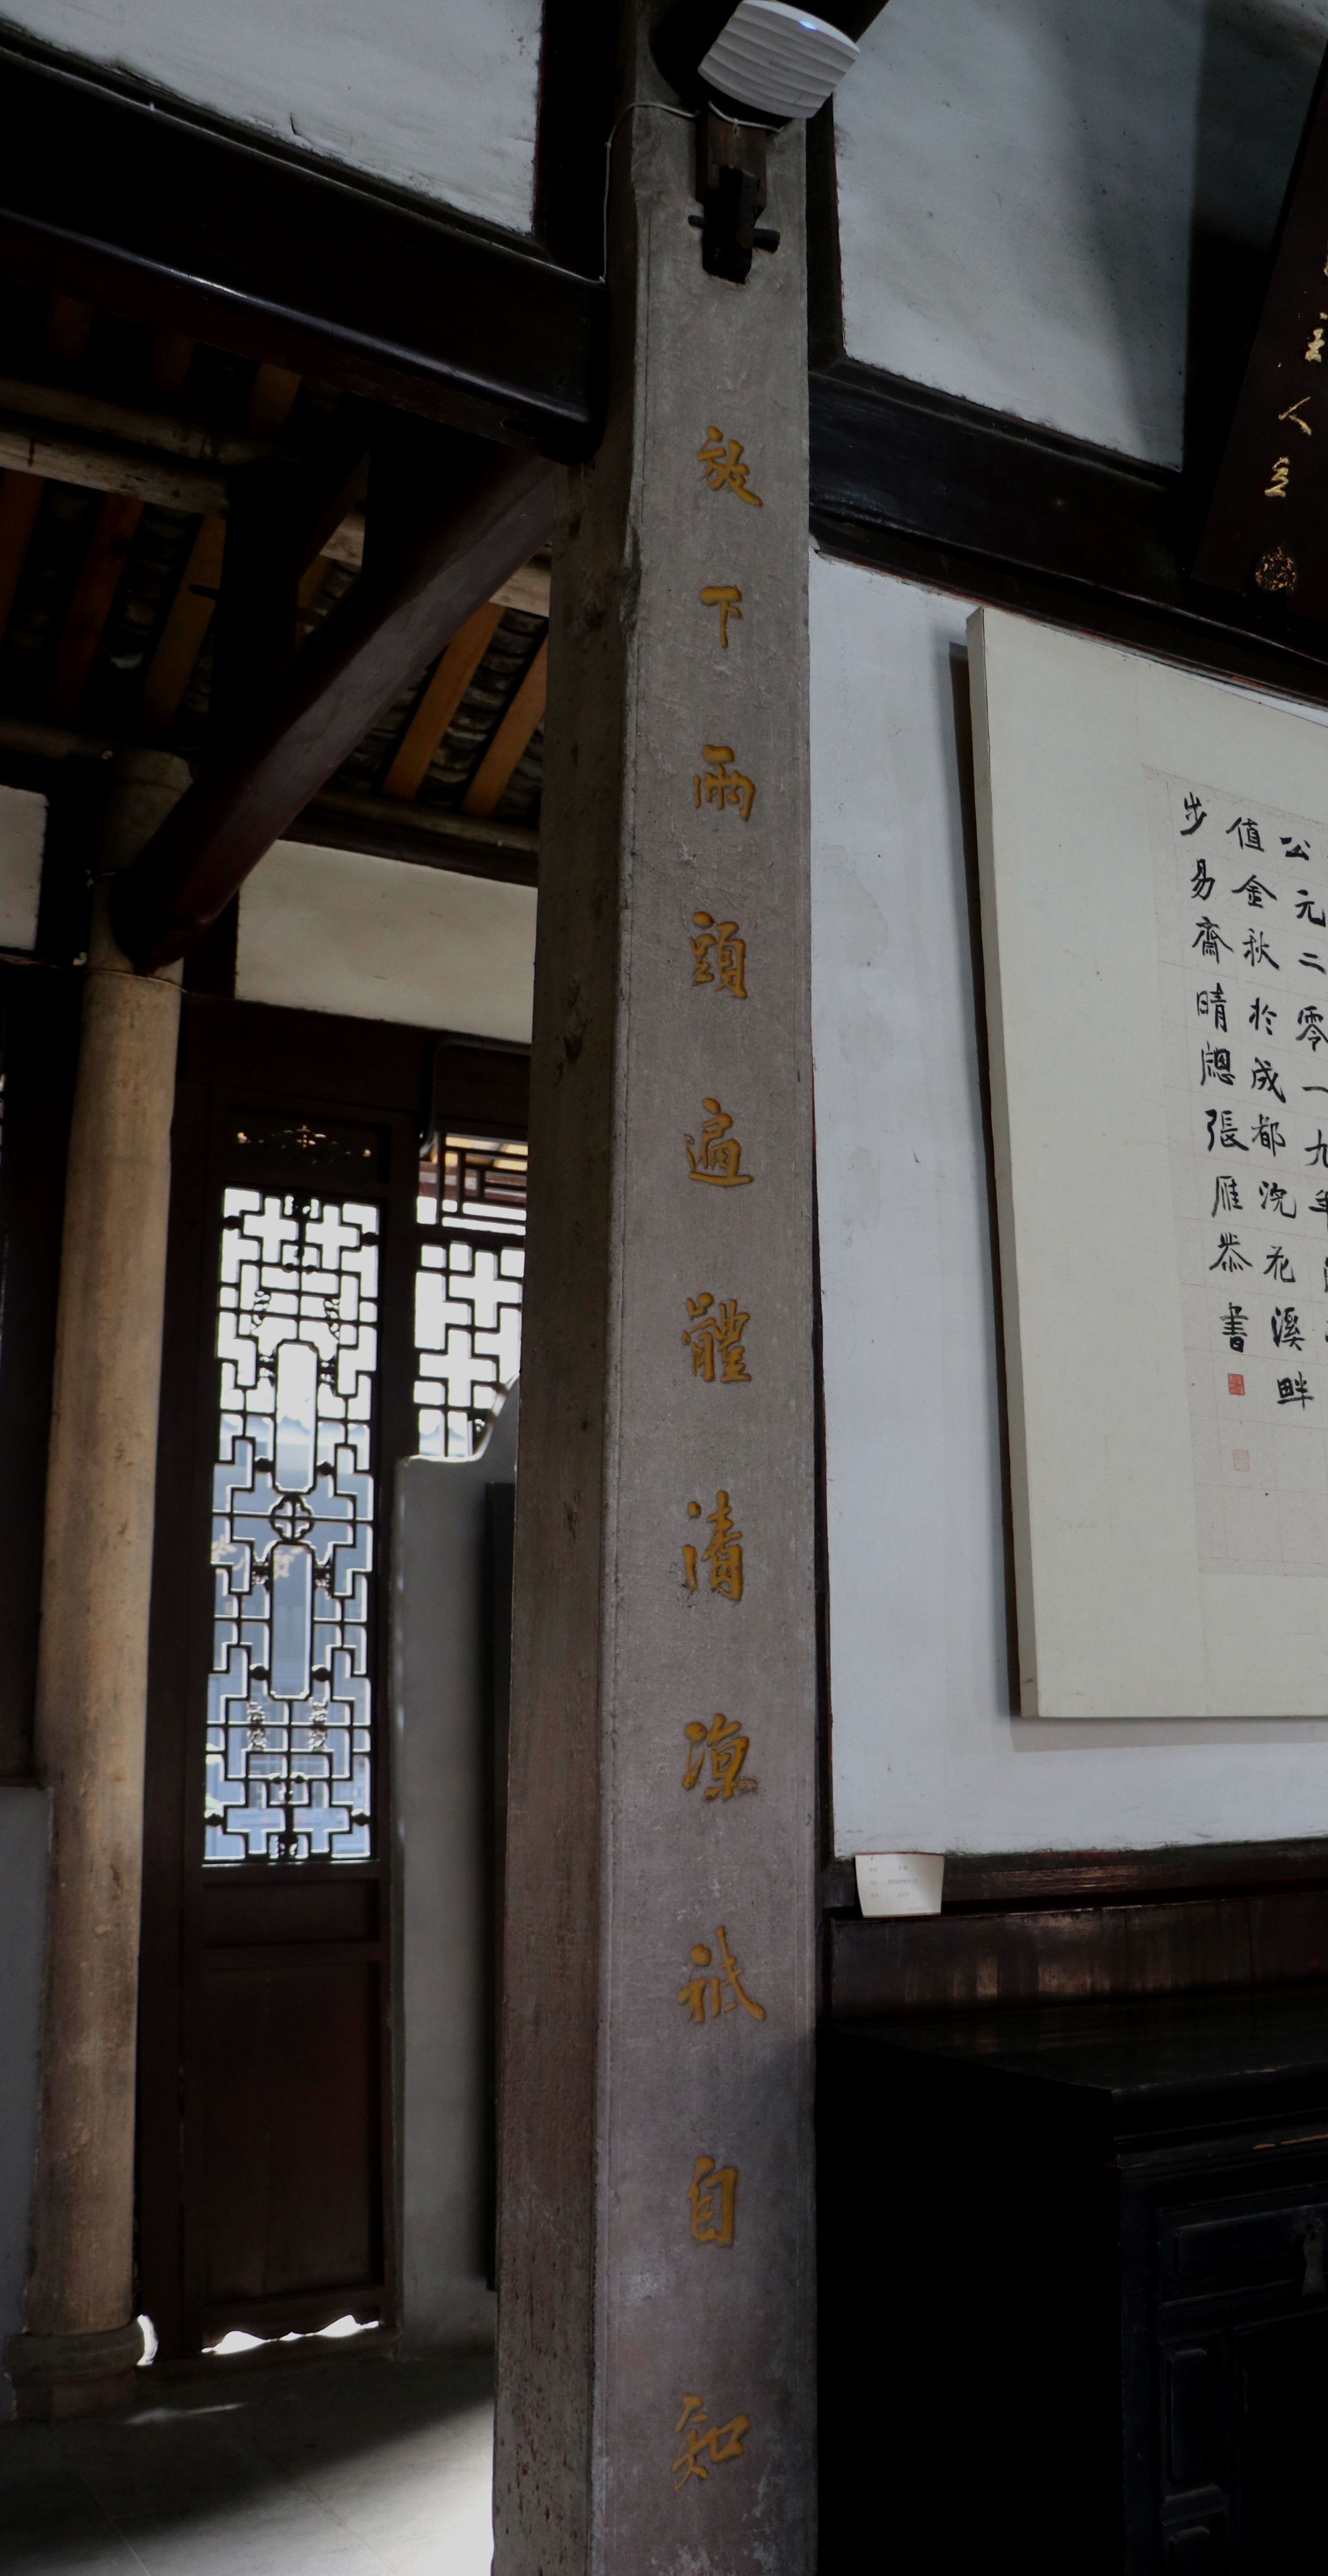 人立
公元二零一九年
值金秋於成都浣花溪畔
步易齋晴牕張雁恭書
放下兩頭遍體清涼祇自知